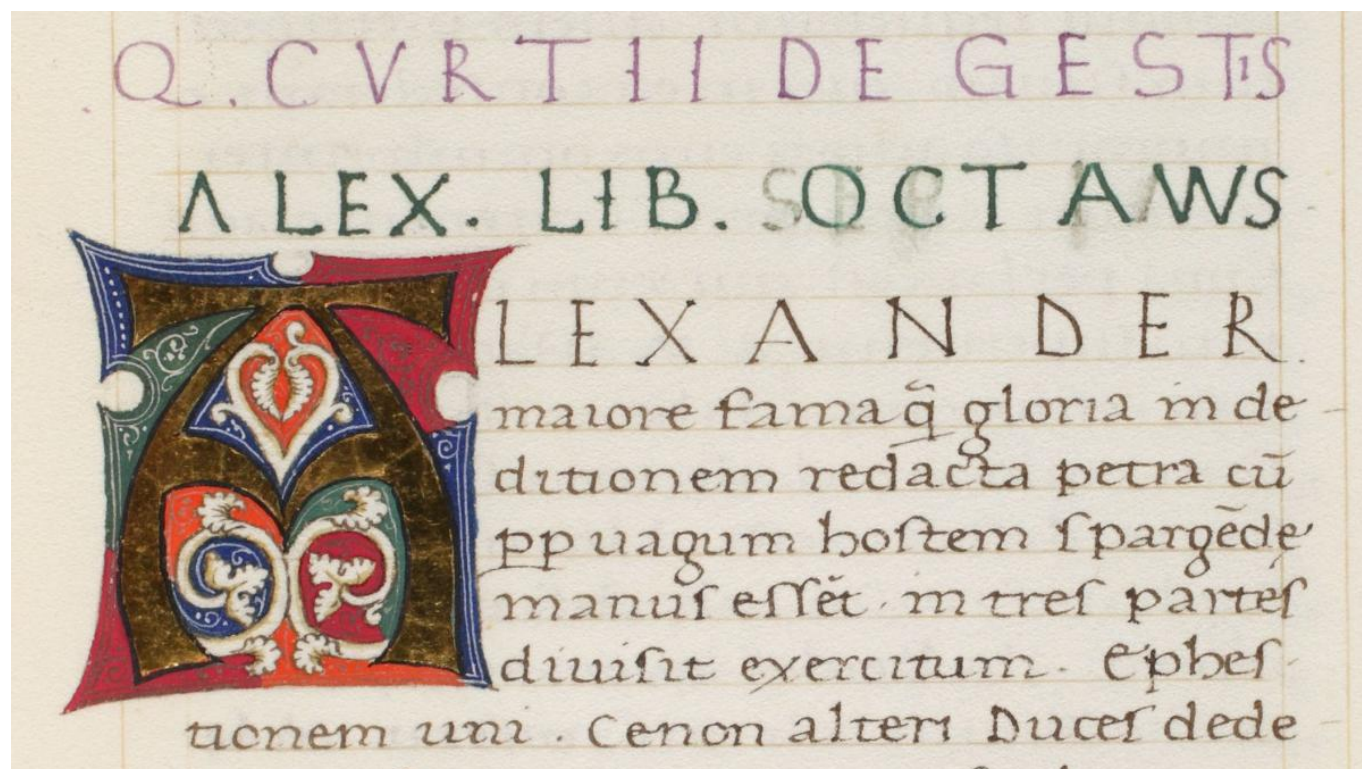 Q. CVRTII DE GESTIS
ALEX. LIB. OCTAVVS
ALEXANDER
maiore fama q̃ gloria in de
ditionem redacta petra cū
ꝓp uagum hoſtem ſpargēde
manuſ eſſēt · in treſ parteſ
diuiſit exercitum · Epheſ
tionem uni · Cenon alteri Duceſ dede